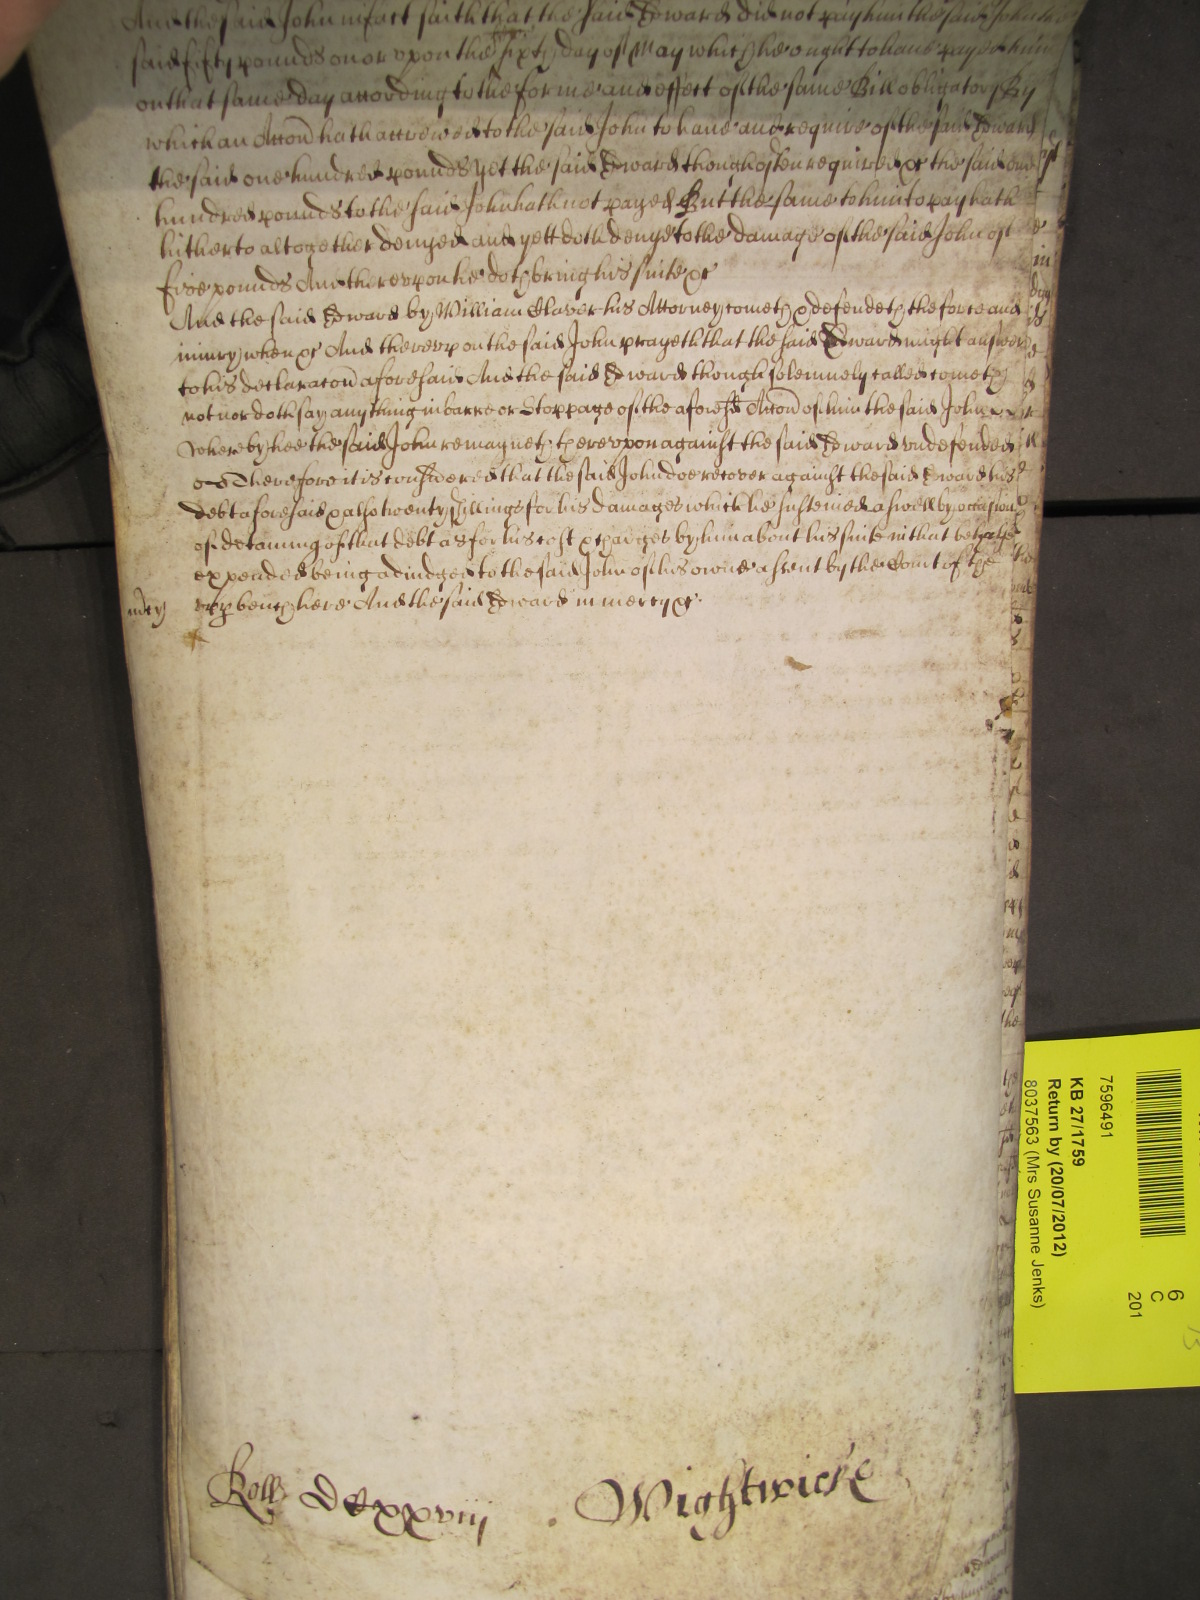 And the said John in fact saith that the said Edward did not pay him the said John the
said fifty pounds on or vpon the sixth day of May which he ought to haue payed him
on that same day according to the forme and effect of the same Bill obligatory By
which an Accon hath accrewed to the said John to haue and require of the said Edward
the said one hundred pounds yet the said Edward though often required &c the said one
hundred pounds to the said John hath not payed But the same to him to pay hath
hitherto altogether denyed and yett doth denye to the damage of the said John of
five pounds And therevpon he doth bring his suite &c
And the said Edward by William Claver his Attorney cometh & defendeth the force and
iniury when &c And therevpon the said John prayeth that the said Edward might answer
to his declaracon aforesaid And the said Edward though solemnely called cometh
not nor doth say any thing in barre or Stoppage of the aforesd Accon of him the said John
whereby hee the said John remayneth therevpon against the said Edward vndefended
Therefore it is considered that the said John doe recover against the said Edward his
debt aforesaid & also twenty shillings for his damages which he susteined aswell by occasion
of detaining of that debt as for his cost & charges by him about his suite in that behalfe
expended being adiudged to the said John of his owne assent by the Court of the
vpp bench here And the said Edward in mercy &c
mcy
Roll DCxxviij
Wightwicke
7596491
KB 27/1759
Return by (20/07/2012)
8037563 (Mrs Susanne Jenks)
6
C
201